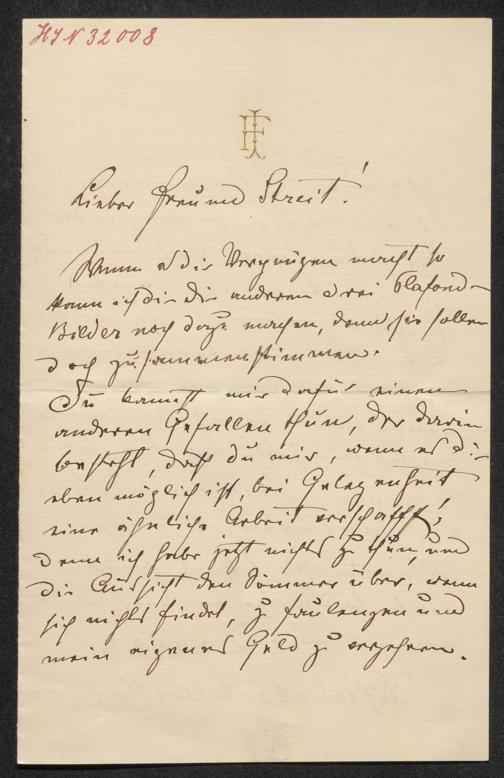 HIN 32008
FI
Lieber Freund Streit!
Wenn es dir Vergnügen macht so
kann ich dir die anderen drei Plafond-
Bilder noch dazu machen, denn sie sollen
doch zusammenstimmen.
Du kannst mir dafür einen
anderen Gefallen thun, der darin
besteht, daß du mir, wenn es dir
eben möglich ist, bei Gelegenheit
eine ähnliche Arbeit verschaffst,
denn ich habe jetzt nichts zu thun, und
die Aussicht den Sommer über, wenn
sich nichts findet, zu faulenzen und
mein eigenes Geld zu verzehren.